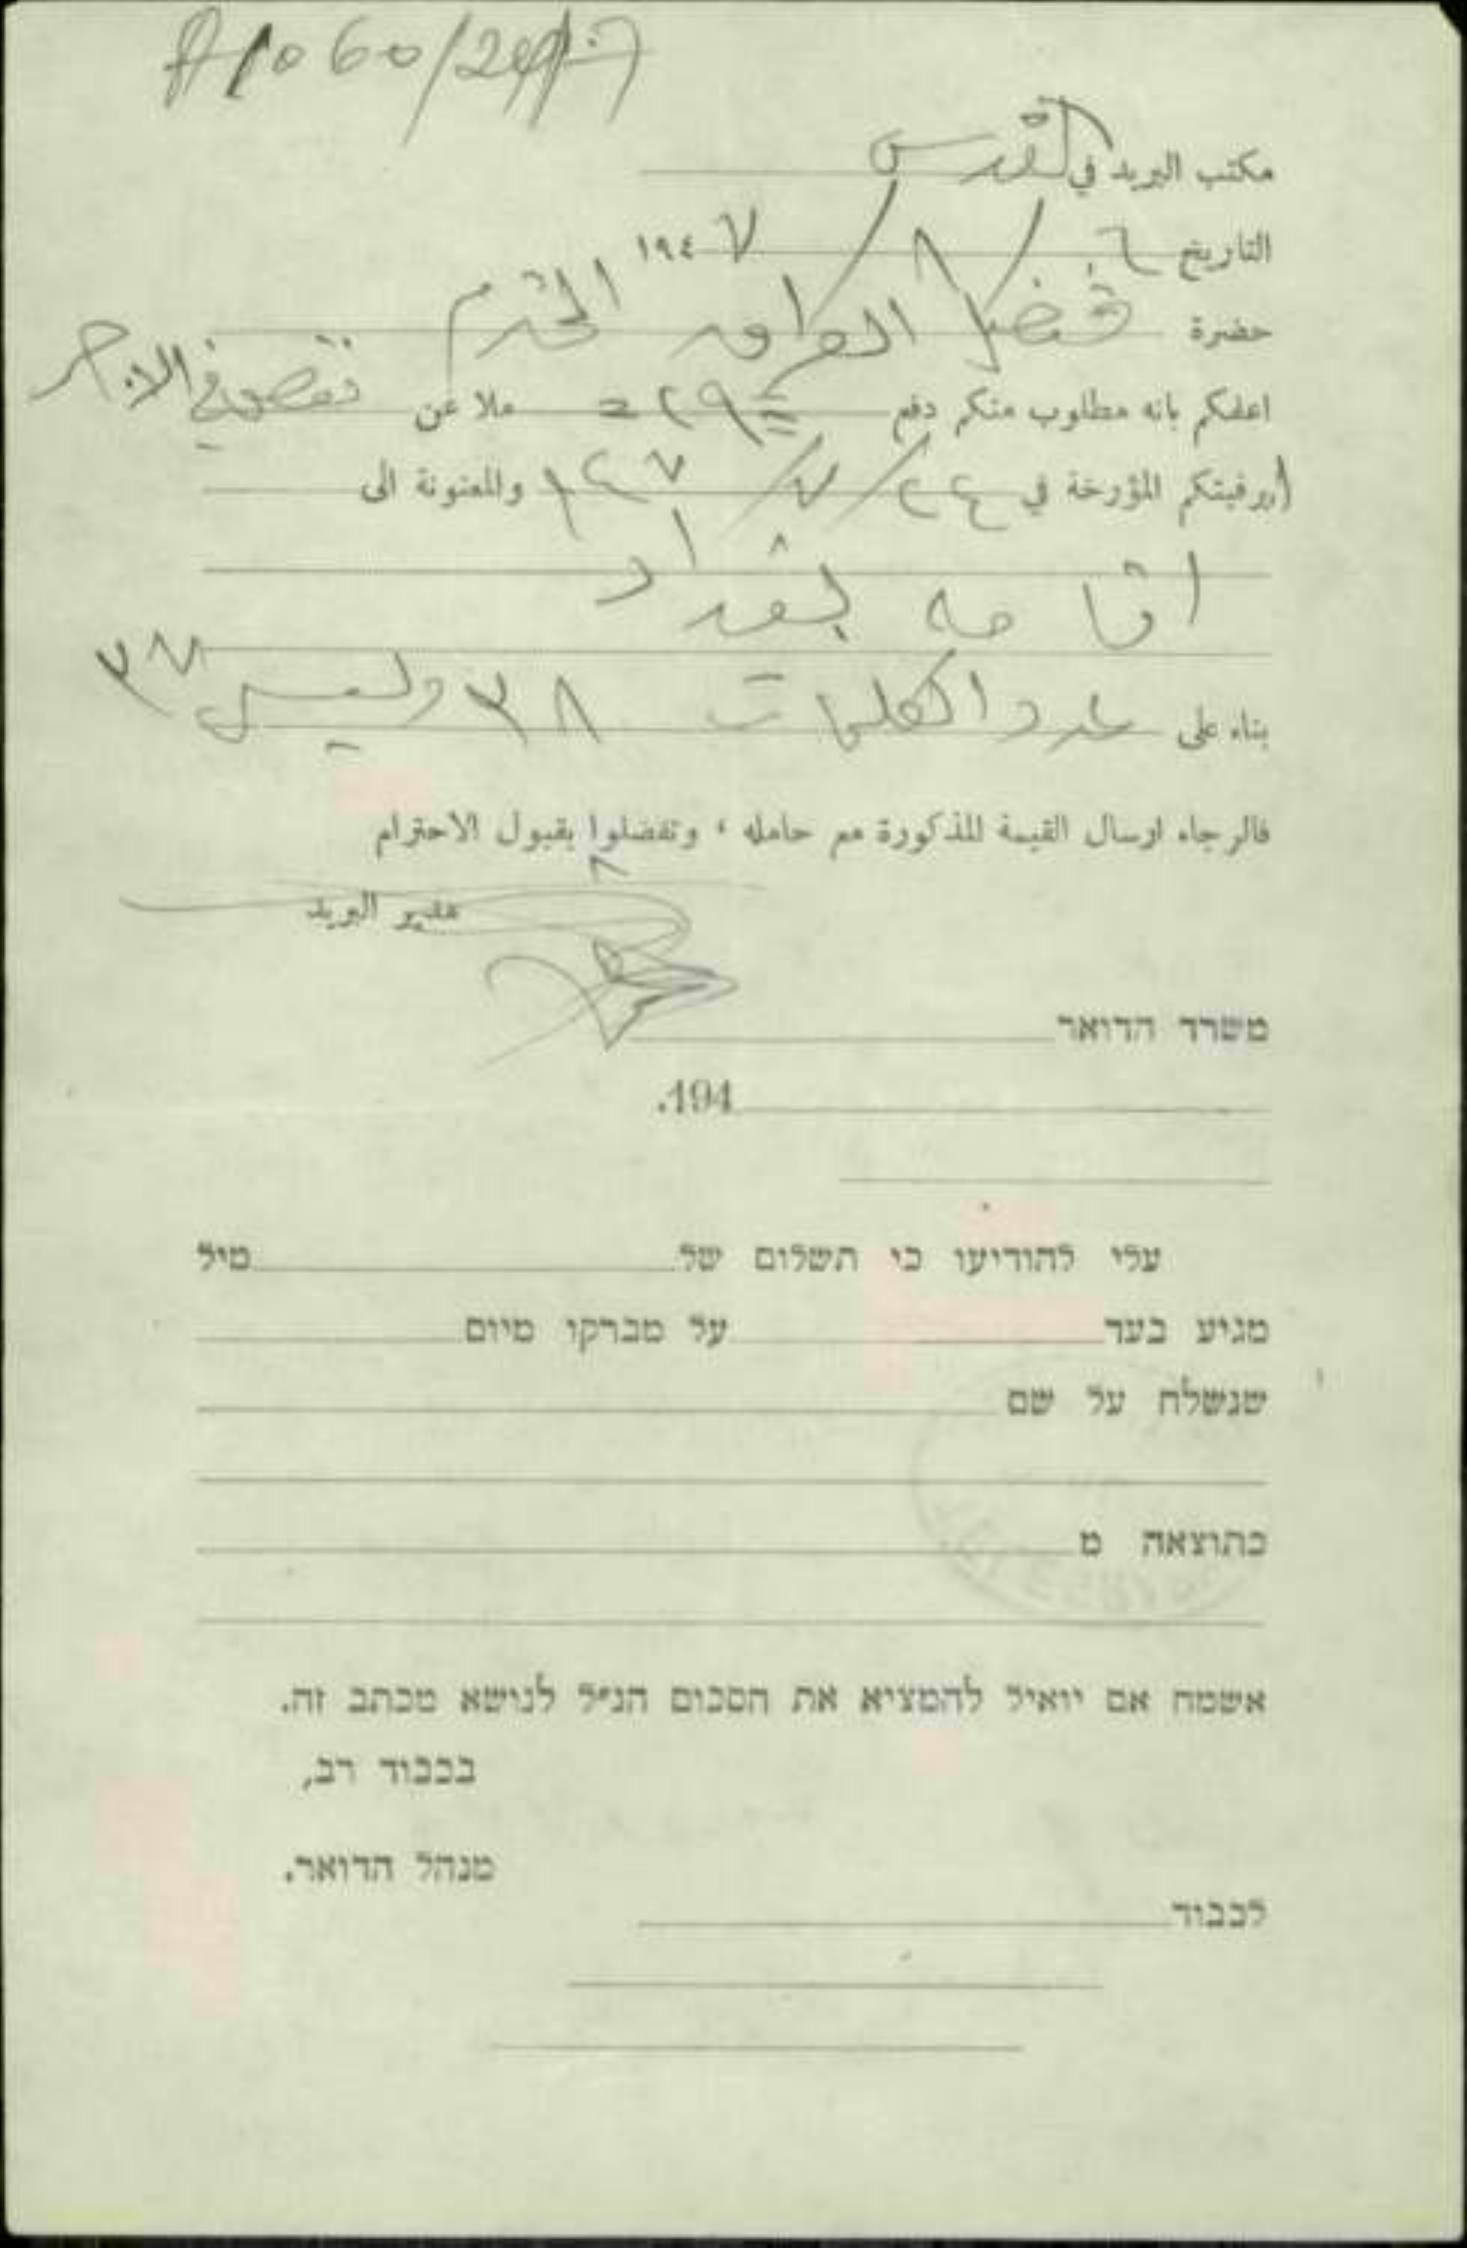 مكتب البريد في القدس
التاريخ ٦ / ٨ / ١٩٤٧
حضرة قنصل العراق المحترم
اعلمكم بانه مطلوب منكم دفع =٢٩= ملا عن نقص في الاجر
(برقيتكم المؤرخة في ٢٤/٧/ والمعنونة الى
بغداد
بناء على عدد الكلمات ٣٨ وليس ٣٧
فالرجاء ارسال القيمة المذكورة مع حامله ، وتفضلوا بقبول الاحترام
مدير البريد
משרד הדואר
194.
עלי להודיעו כי תשלום של מיל
מגיע בעד על מברקו מיום
שנשלח על שם
כתוצאה מ
אשמח אם יואיל להמציא את הסכום הנ״ל לנושא מכתב זה.
בכבוד רב,
מנהל הדואר.
לכבוד